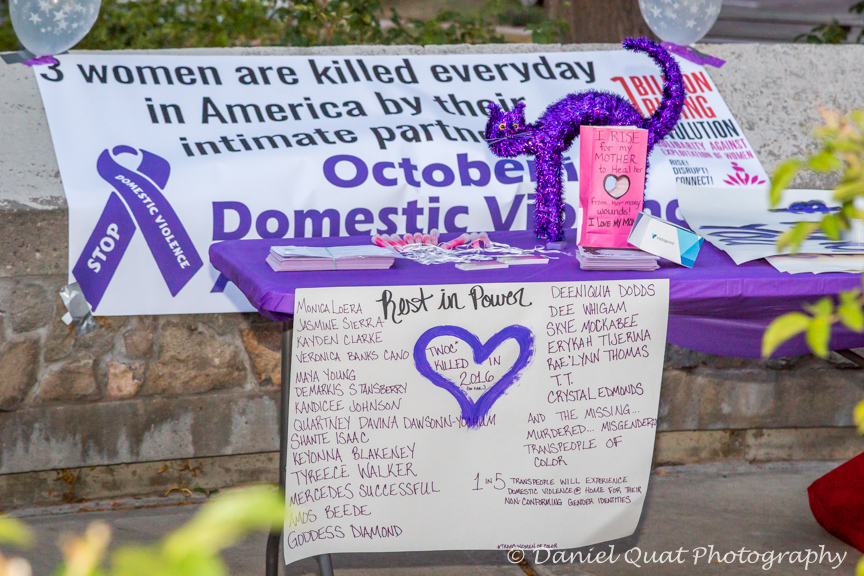 3 women are killed everyday
in America by their
intimate
October
Domestic
STOP
DOMESTIC VIOLENCE
1 BILLION
RISING
REVOLUTION
SOLIDARITY AGAINST
EXPLOITATION OF WOMEN
RISE!
DISRUPT!
CONNECT!
I RISE
for my
MOTHER
to Heal her
From her many
wounds!
I LOVE MY MOM
Rest in Power
MONICA LOERA
JASMINE SIERRA
KAYDEN CLARKE
VERONICA BANKS CANO
MAYA YOUNG
DEMARKIS STANSBERRY
KANDICEE JOHNSON
QUARTNEY DAVINA DAWSONN-YOCHUM
SHANTE ISAAC
KEYONNA BLAKENEY
TYREECE WALKER
MERCEDES SUCCESSFUL
AMOS BEEDE
GODDESS DIAMOND
"TWOC"
KILLED IN
2016
DEENIQUIA DODDS
DEE WHIGAM
SKYE MOCKABEE
ERYKAH TIJERINA
RAE'LYNN THOMAS
T.T.
CRYSTAL EDMONDS
AND THE MISSING...
MURDERED... MISGENDERED
TRANSPEOPLE OF
COLOR
1 IN 5 TRANSPEOPLE WILL EXPERIENCE
DOMESTIC VIOLENCE @ HOME FOR THEIR
NON-CONFORMING GENDER IDENTITIES.
#TRANSWOMENOFCOLOR
© Daniel Quat Photography